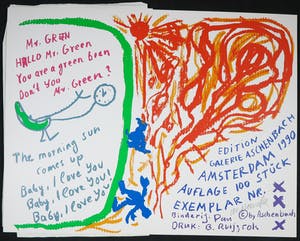 Mr. GREEN
HALLO Mr. Green
You are a green bean
Don't you
Mr. Green?
The morning sun
comes up
Baby, I love you
Baby, I love you!
Baby, I love you
EDITION
GALERIE ASCHENBACH
AMSTERDAM 1990
AUFLAGE 100 STÜCK
EXEMPLAR NR.
© by Aschenbach
Binderij: Pau
DRUK: B. Ruijsroh